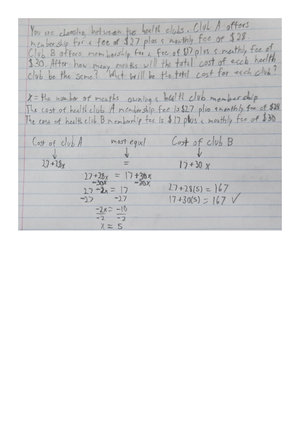 You are choosing between two health clubs. Club A offers
membership for a fee of $27 plus a monthly fee of $28
Club B offers membership for a fee of $17 plus a monthly fee of
$30. After how many months will the total cost of each health
club be the same? What will be the total cost for each club?
x = the number of months owning a health club membership
The cost of health club A membership fee is $27 plus a monthly fee of $28
The cost of health club B membership fee is $17 plus a monthly fee of $30
Cost of club A must equal Cost of club B
↓ ↓ ↓
27+28x = 17+30x
27+28x = 17+30x
-30x -30x
27-2x = 17 27+28(5)=167
-27 -27 17+30(5)=167 ✓
-2x = -10
-2 -2
x = 5